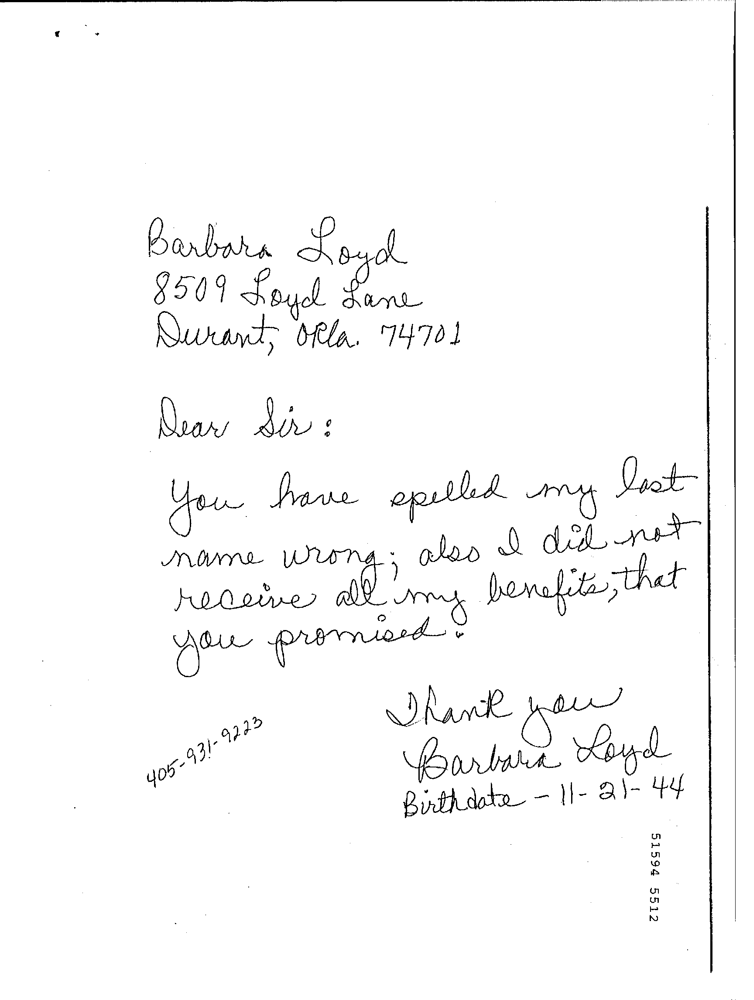 Barbara Loyd
8509 Loyd Lane
Durant, Okla. 74701
Dear Sir:
You have spelled my last
name wrong; also I did not
receive all my benefits, that
you promised.
Thank you
Barbara Loyd
405-931-9223
Birthdate - 11-21-44
51594 5512